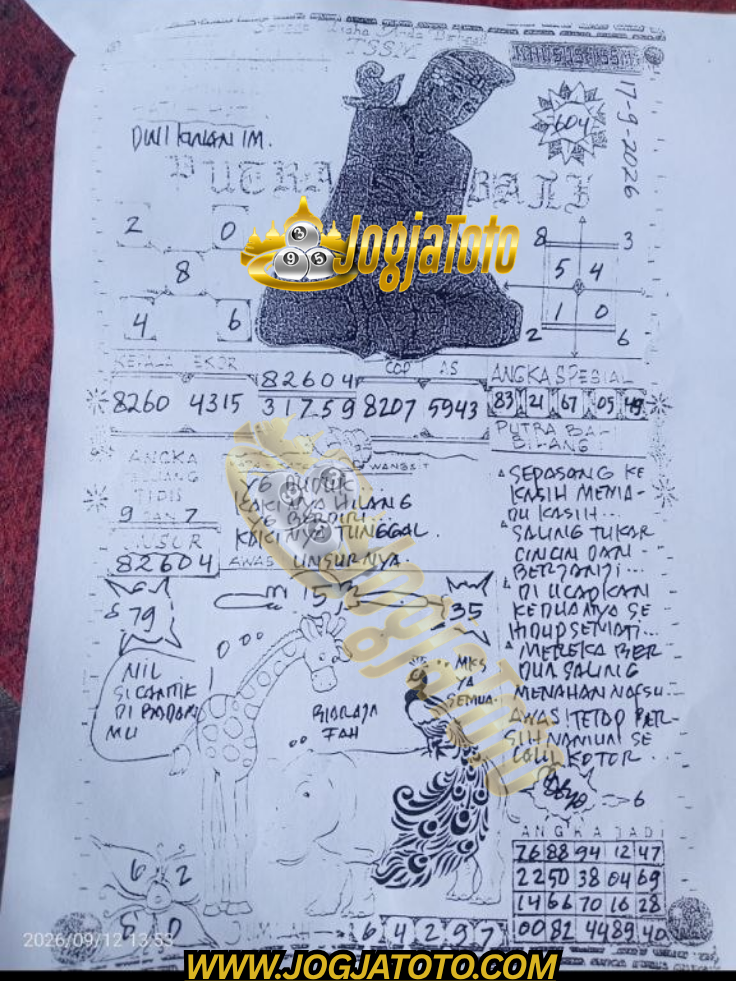 TSSM
17-9-2026
604
DWI KNAN IM.
PUTRA BALI
JogjaToto
3
9 5
2 0
8
4 6
8 3
5 4
1 0
2 6
KEPALA EKOR
8260 4315
82604
31759
COP AS
8207 5943
ANGKA SPESIAL
83 21 67 05 49
ANGKA
9 7
82604
WANGSIT
YG DUDUK...
KAKINYA HILANG
YG BERDIRI...
KAKINYA TUNGGAL.
AWAS UNSURNYA.
PUTRA BA-
BILANG
SEPASANG KE
KASIH MEMA-
DU KASIH...
SALING TUKAR
CINCIN DAN
BERJANJI...
DI UCAPKAN
KEDUANYA SE
HIDUP SEMATI...
MEREKA BER
DUA SALING
MENAHAN NAFSU...
AWAS! TETAP BER-
SIH NAMUN SE
KOTOR
6
79
15
35
NIL
SI CANTIK
DI BADAN
MU
MKS
YA
SEMUA.
FAH
6 2
5 0
JUMLAH
6 4 2 9 7
ANGKA JADI
76 88 94 12 47
22 50 38 04 69
14 66 70 16 28
00 82 44 89 40
JogjaToto
2026/09/12 13:53
WWW.JOGJATOTO.COM